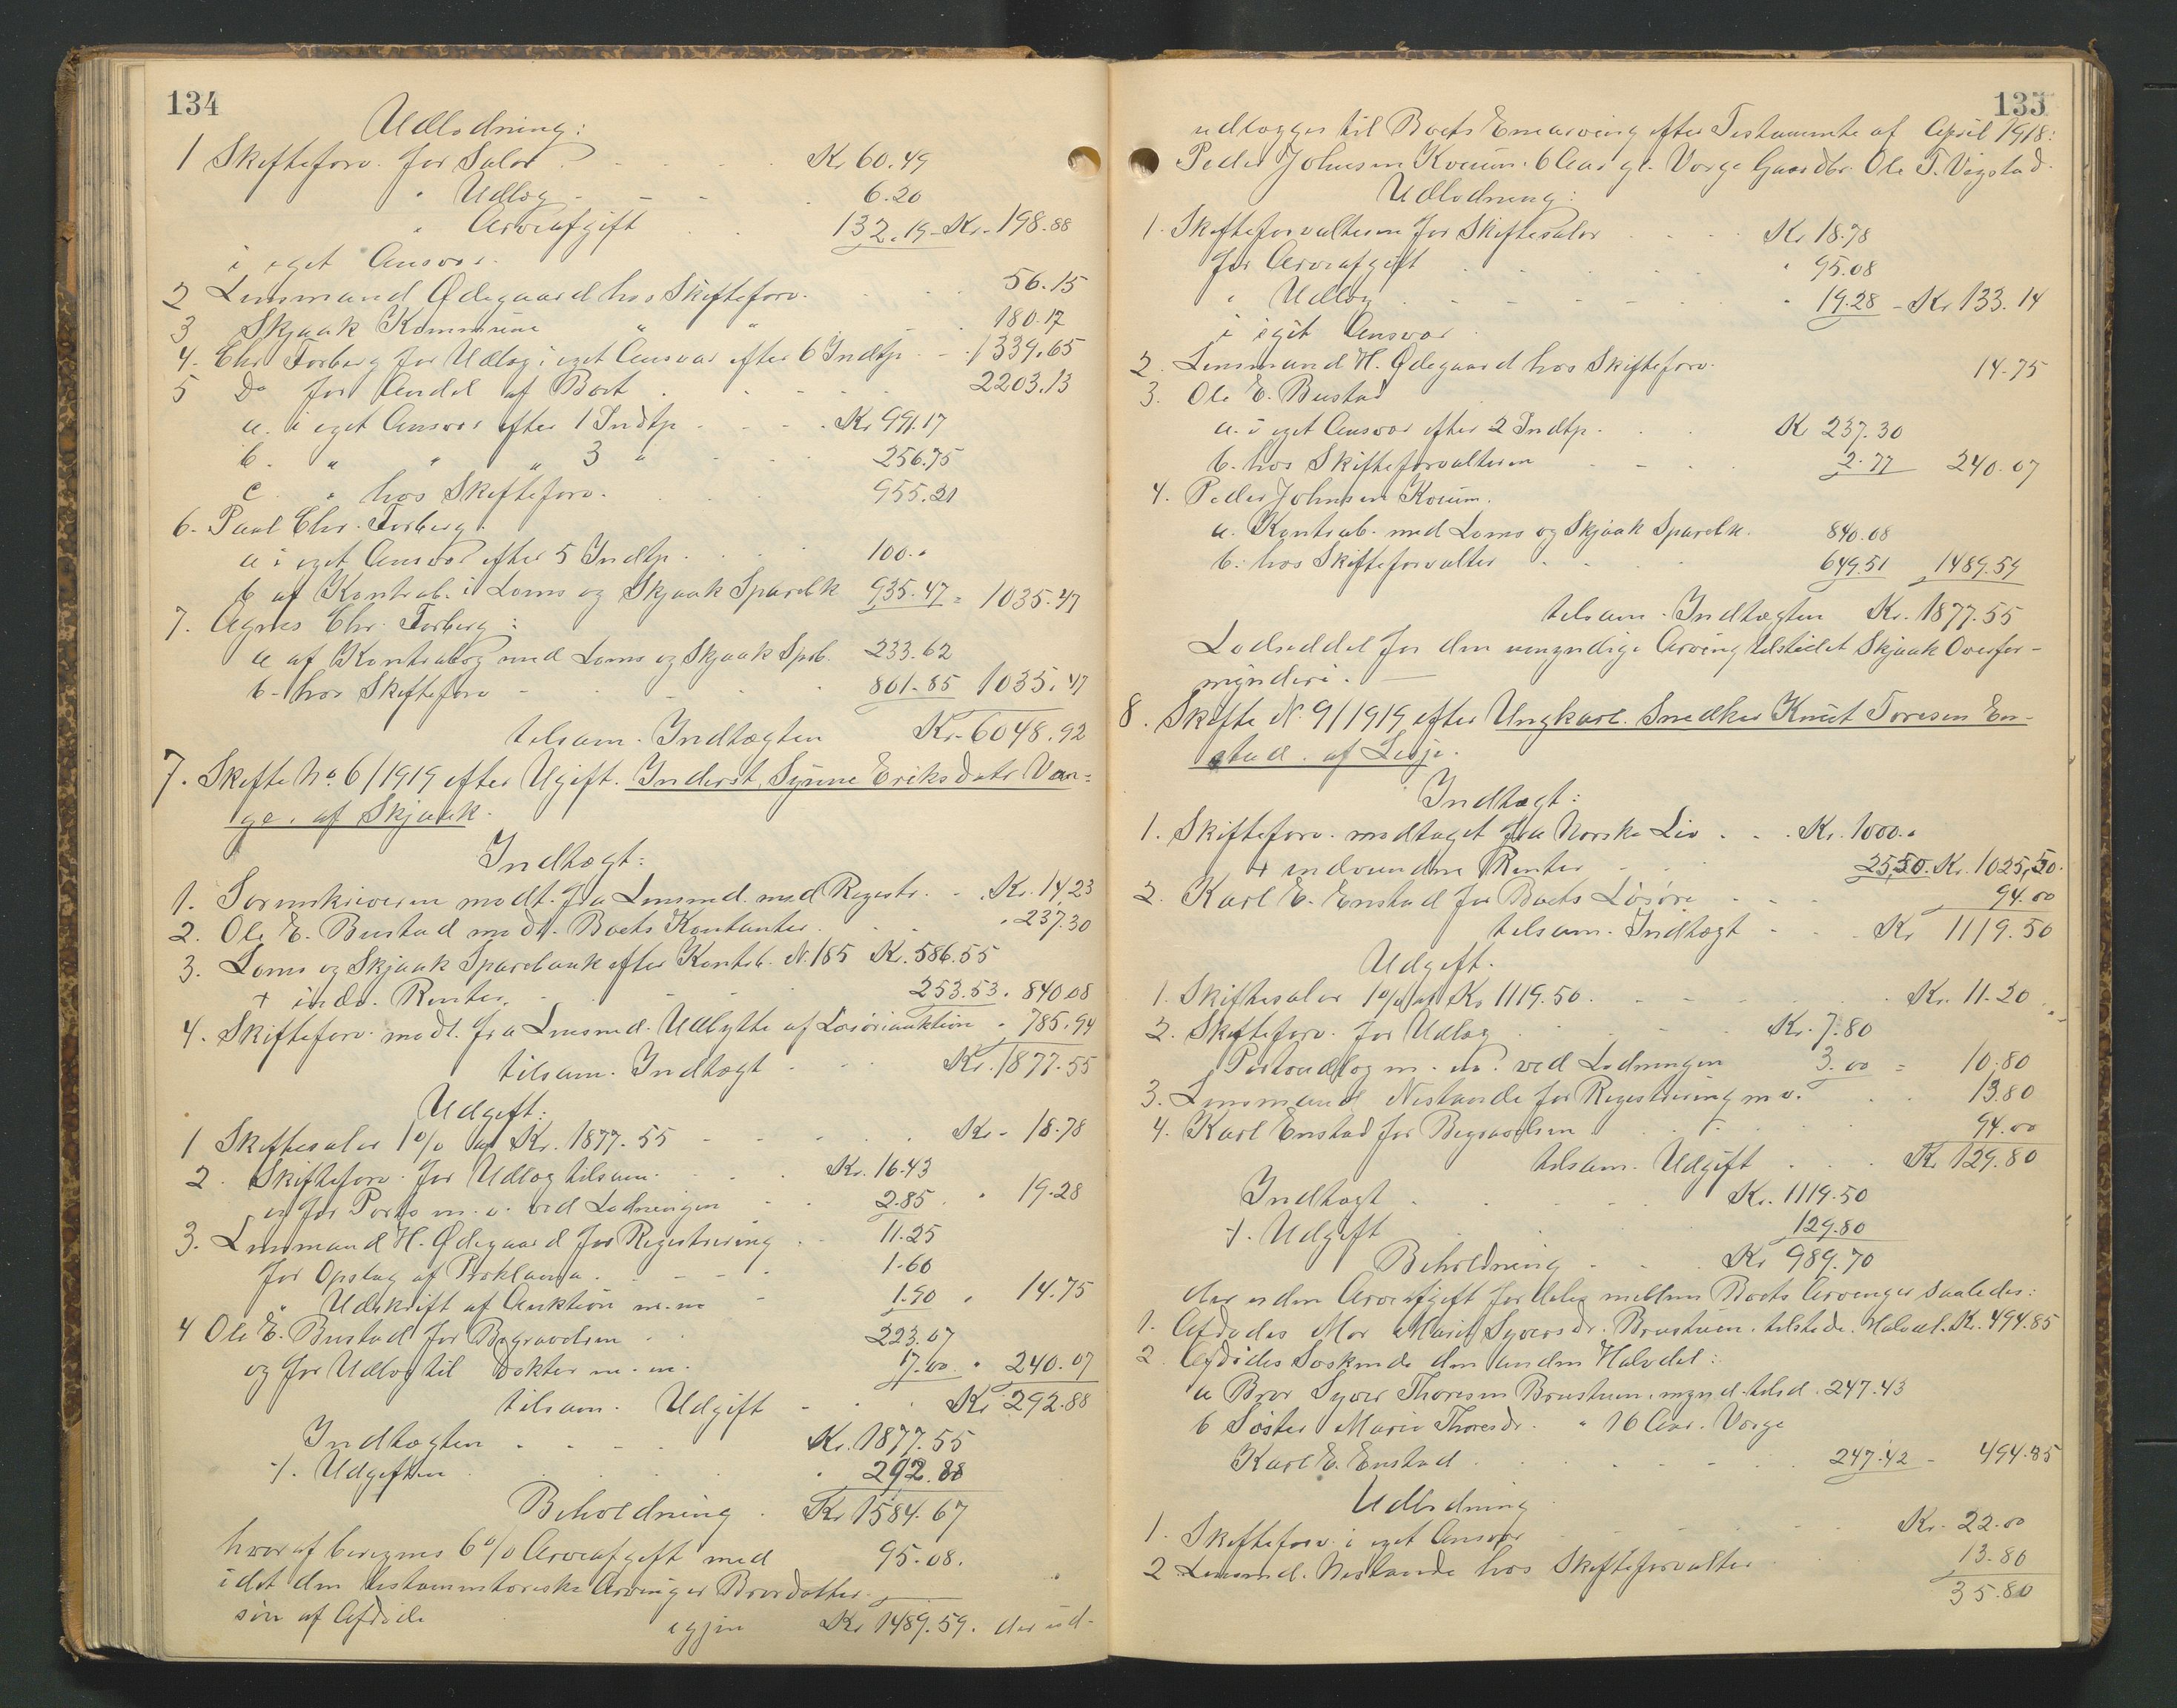 134
Udlodning:
1 Skifteforv. for Salær . . . . Kr 60.49
" Udlæg - - - . 6.20
" Arveafgift . . 132.19 - Kr. 198.88
i eget Ansvar.
2 Lensmand Ødegaard hos Skifteforv. . . . 56.15
3 Skjaak Kommune " " - . 180.17
4. Chr. Forberg for Udlæg i eget Ansvar efter 6 Indtp. - . 1339.65
5 Do for Andel af Boet . . . . 2203.13
a. i eget Ansvar efter 1 Indtp. - - - . Kr 991.17
b. " " " 3 " - . . 256.75
c. " hos Skifteforv. . . . 955.21
6. Paul Chr. Forberg.
a i eget Ansvar efter 5 Indtp. . . . 100.-
b af Kontrab. i Loms og Skjaak Sparebk 935.47 = 1035.47
7. Agnes Chr. Forberg:
a af Kontrabog med Loms og Skjaak Spb. 233.62
b - hos Skifteforv - - - . 801.85 1035.47
tilsam. Indtægten Kr. 6048.92
7. Skifte No. 6/1919 efter Ugift. Inderst, Synne Eriksdatr Van-
ge. af Skjaak.
Indtægt:
1. Sorenskriveren modt. fra Lensmd. med Registr. - . Kr. 14,23
2. Ole E. Bustad modt. Boets Kontanter . . . 237.30
3. Loms og Skjaak Sparebank efter Kontrb. N. 185 Kr. 586.55
+ indv. Renter. - . - - 253.53. 840.08
4. Skifteforv. modt. fra Lensmd. Udbytte af Løsøreauktion . 785.94
tilsam. Indtægt - . . Kr. 1877.55
Udgift:
1 Skiftesalær 1% af Kr. 1877.55 - - - . . Kr. - 18.78
2. Skifteforv. for Udlæg tilsam. - . . Kr. 16.43
og for Porto m. v. ved Lodningen - . 2.85 . " 19.28
3. Lensmand H. Ødegaard for Registrering . . 11.25
for Opslag af Proklama. . - - . 1.60
" Udskrift af Auktion m.m - 1.90 . 14.75
4 Ole E. Bustad for Begravelsen . . 223.07
og for Udlæg til Doktor m.m. 17.00 " 240.07
tilsam. Udgift - . . Kr. 292.88
Indtægten . - - - Kr. 1877.55
-/. Udgiften . . . . 292.88
Beholdning . Kr 1584.67
hvoraf beregnes 6% Arveafgift med 95.08.
idet den testamentariske Arving er Brordatter-
søn af Afdøde igjen Kr 1489.59. der ud-
135
udlægges til Boets Enearving efter Testamente af April 1918:
Peder Johnsen Kveum. 6 Aar gl. Verge Gaardbr. Ole T. Vigstad.
Udlodning:
1. Skifteforvalteren for Skiftesalær . . . . Kr 18.78
for Arveafgift . . . . . " 95.08
" Udlæg . . - - - - . " 19.28 - Kr 133.14
i eget Ansvar .
2. Lensmand H. Ødegaard hos Skifteforv. 14.75
3. Ole E. Bustad
a. i eget Ansvar efter 2 Indtp. . . . Kr 237.30
b. hos Skifteforvalteren - - . . 2.77 240.07
4. Peder Johnsen Kveum.
a. Kontrab. med Loms og Skjaak Sparebk. 840.08
b. hos Skifteforvalter - . . . . 649.51 1489.59
tilsam. Indtægten Kr. 1877.55
Lodseddel for den umyndige Arving tilstillet Skjaak Overfor-
mynderi. -
8. Skifte N. 9/1919 efter Ungkarl. Snedker Knut Toresen En-
stad. af Lesje.
Indtægt:
1. Skifteforv. modtaget fra Norske Liv . . . Kr. 1000.-
+ indvundne Renter . - . 25,50. Kr. 1025,50.
2. Karl E. Enstad for Boets Løsøre - - - 94.00
tilsam. Indtægt - . . Kr 1119.50
Udgift.
1. Skiftesalær 1% af Kr 1119.50. - - - . . Kr. 11.20
2. Skifteforv. for Udlæg . . . . Kr. 7.80
Portoudlæg m. m. ved Lodningen 3.00 = 10.80
3. Lensmand Nestande for Registrering m v. . . 13.80
4. Karl Enstad for Begravelsen . . . . 94.00
tilsam. Udgift . . . Kr 129.80
Indtægt . . - - Kr. 1119.50
-/. Udgift . . . 129.80
Beholdning - - . Kr 989.70
der uden Arveafgift fordeles mellem Boets Arvinger saaledes:
1. Afdødes Mor Marit Syversdr. Brustuen. tilstede. Halvdel. Kr. 494.85
2. Afdødes Søskende den anden Halvdel:
a Bror Syver Thoresen Brustuen, mynd. tilst. 247.43
b Søster Marie Thoresdr. " 16 Aar. Verge
Karl E. Enstad . . . - - . 247.42 - 494.85
Udlodning
1. Skifteforv. i eget Ansvar - - - . Kr. 22.00
2 Lensmd. Nestande hos Skifteforvalter . . 13.80
35.80